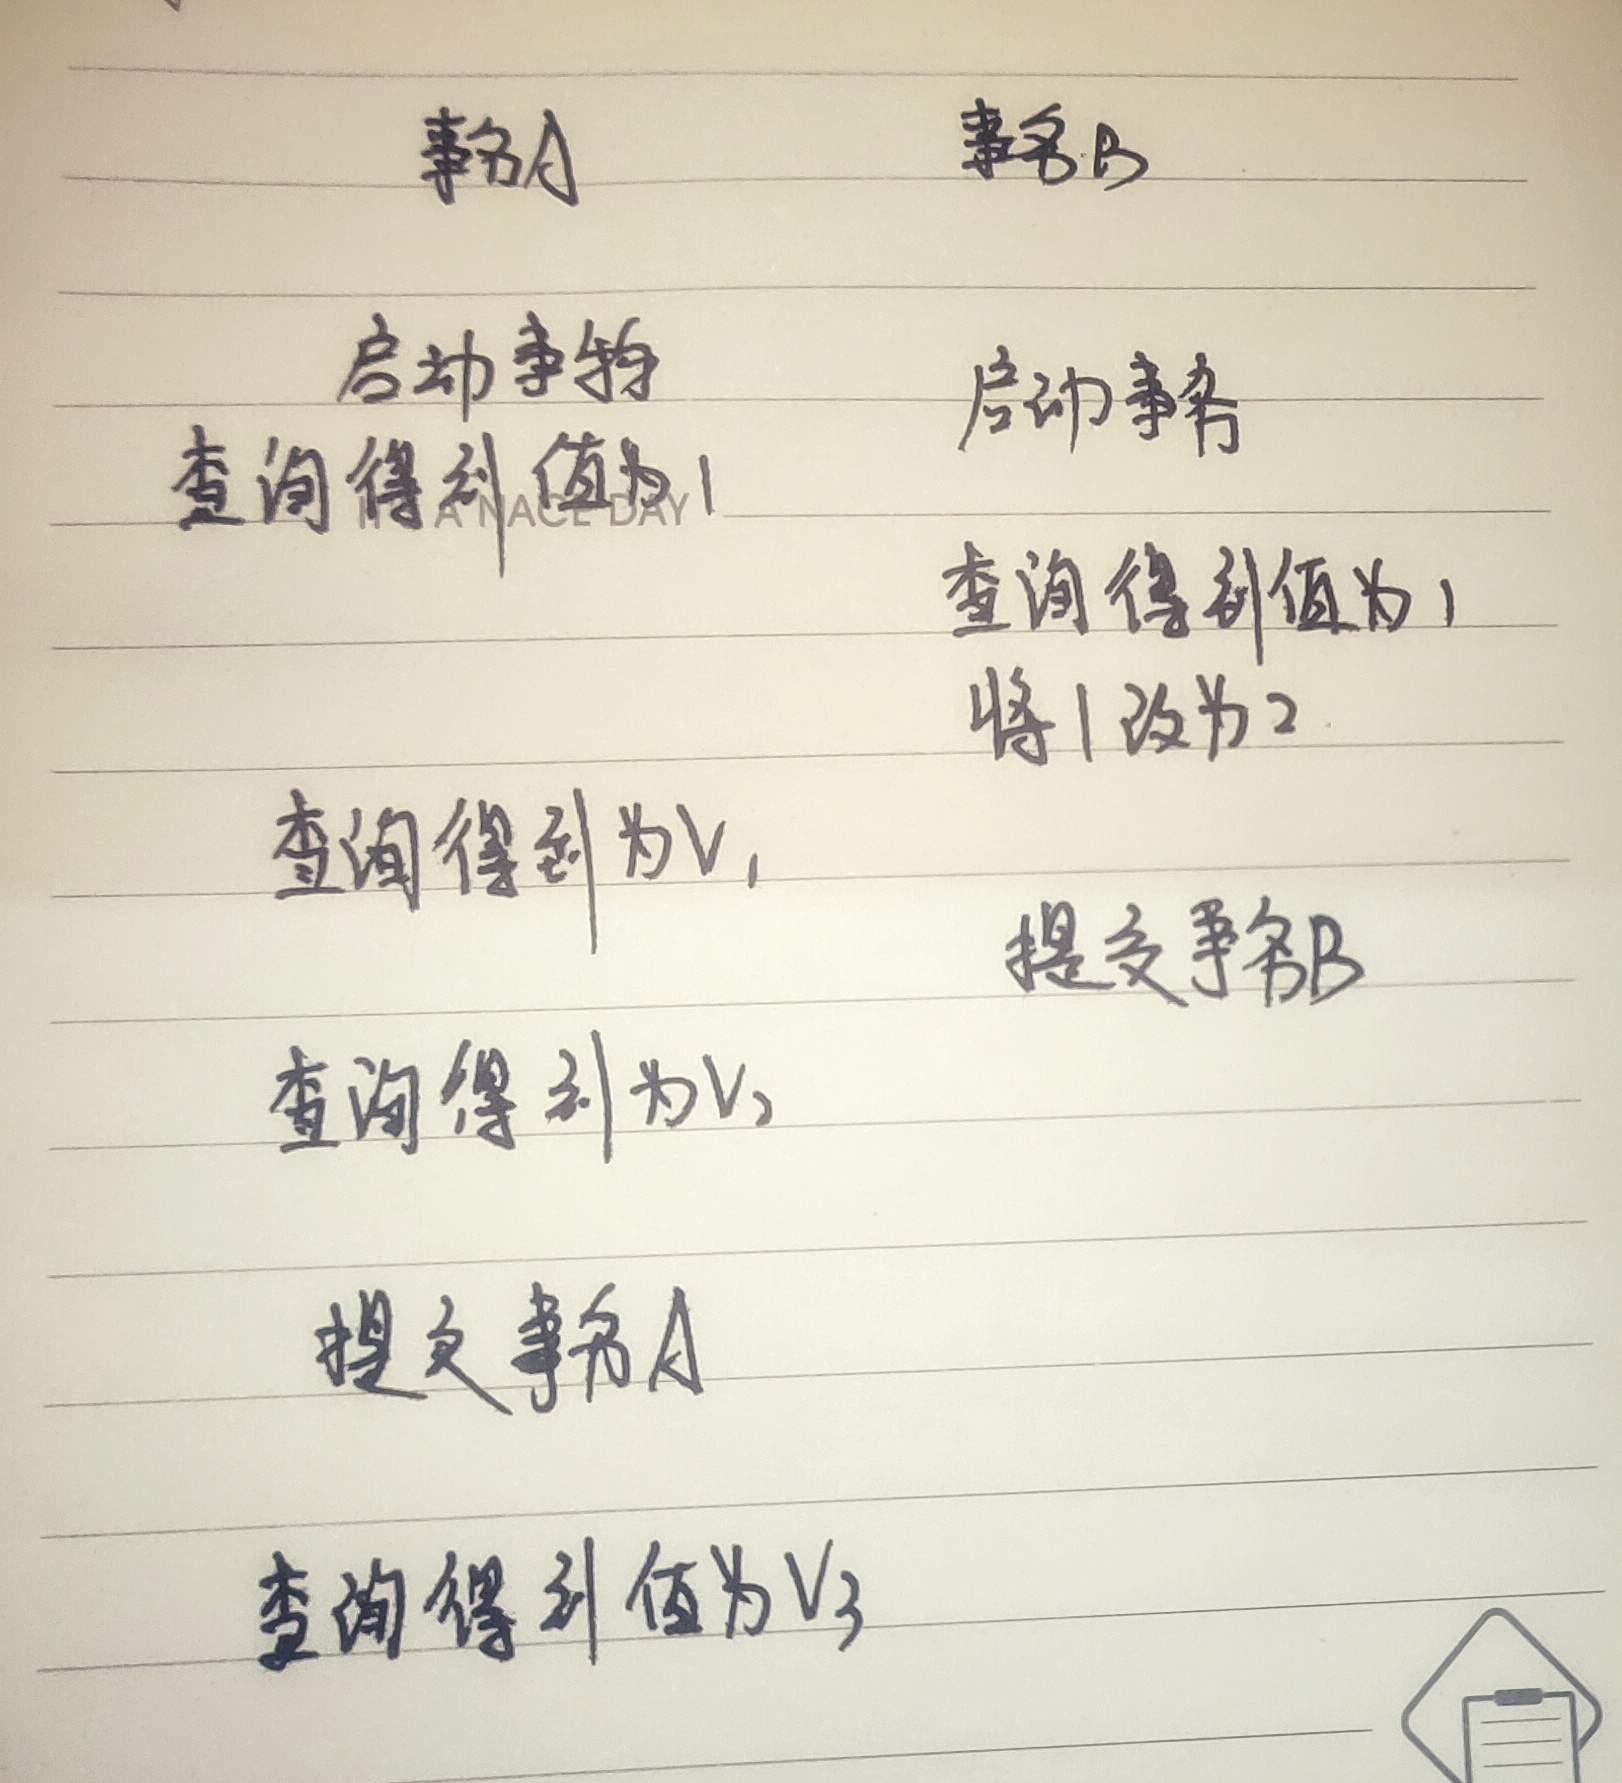 事务A 事务B
启动事物
启动事务
查询得到值为1
A NACE DAY
查询得到值为1
将1改为2
查询得到为V1
提交事务B
查询得到为V2
提交事务A
查询得到值为V3